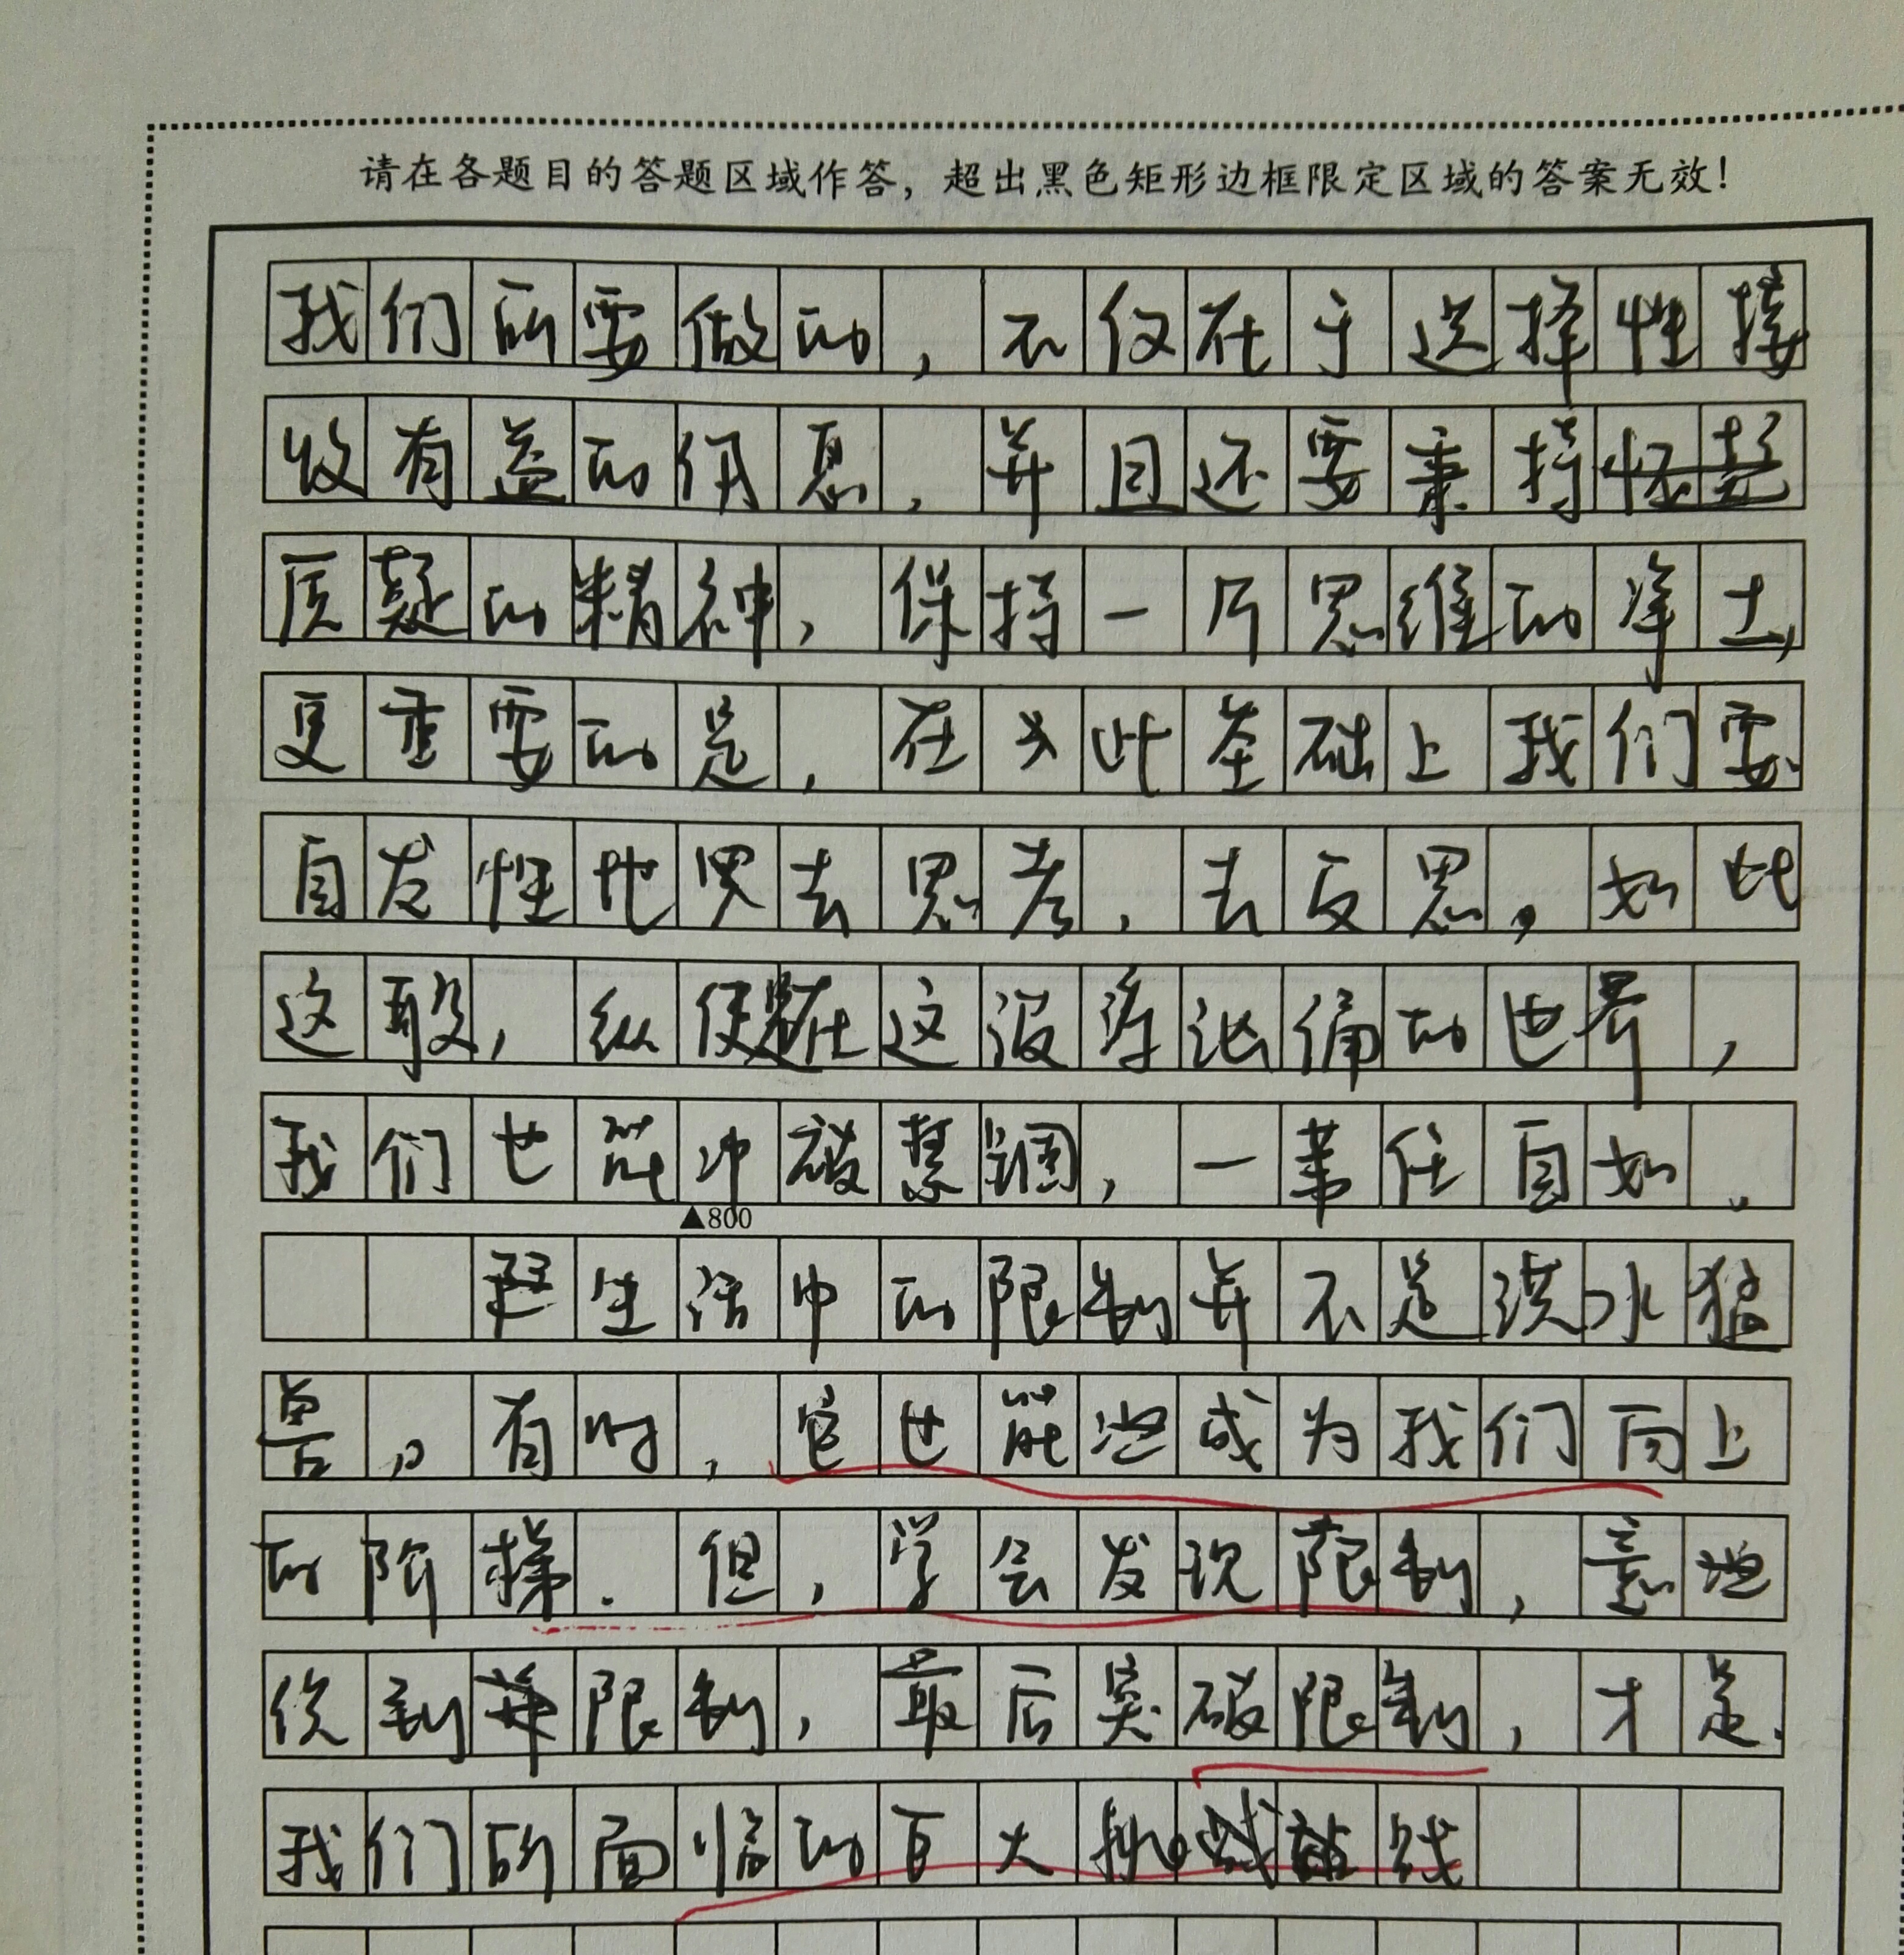 请在各题目的答题区域作答，超出黑色矩形边框限定区域的答案无效！
我们所要做的，不仅在于选择性接
收有益的信息，并且还要秉持怀疑
质疑的精神，保持一片思维的净土，
更重要的是，在此基础上我们要
自发性地去思考，去反思。如此
这般，纵使在这没济泚偏的世界，
我们也能冲破，一苇任自如。
▲800
生活中的限制并不是洪水猛
兽。有时，它也能成为我们向上
的阶梯．但，学会发现限制，意
识到限制，最后突破限制，才是
我们所面临的百大挑战